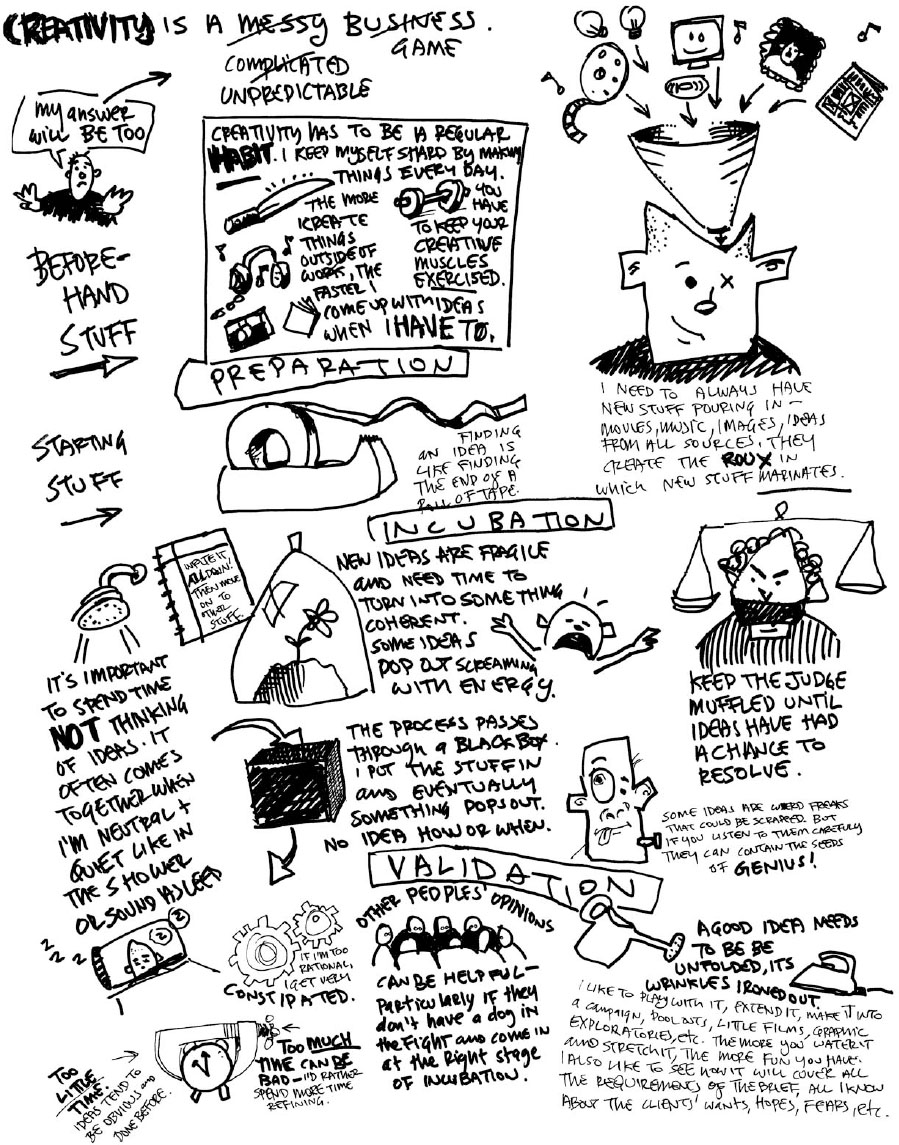 CREATIVITY IS A MESSY BUSINESS.
GAME
COMPLICATED
UNPREDICTABLE
my answer
will BE TOO
BEFORE-
HAND
STUFF
CREATIVITY HAS TO BE A REGULAR
HABIT. I KEEP MYSELF SHARP BY MAKING
THINGS EVERY DAY.
THE MORE
I CREATE
THINGS
OUTSIDE OF
WORK, THE
FASTER I
COME UP WITH IDEAS
WHEN I HAVE TO.
YOU
HAVE
TO KEEP YOUR
CREATIVE
MUSCLES
EXERCISED.
I NEED TO ALWAYS HAVE
NEW STUFF POURING IN—
MOVIES, MUSIC, IMAGES, IDEAS
FROM ALL SOURCES. THEY
CREATE THE ROUX IN
which NEW STUFF MARINATES.
PREPARATION
STARTING
STUFF
FINDING
AN IDEA IS
LIKE FINDING
THE END OF A
ROLL OF TAPE.
INCUBATION
WRITE IT
ALL DOWN!
THEN MOVE
ON TO
OTHER
STUFF.
IT'S IMPORTANT
TO SPEND TIME
NOT THINKING
OF IDEAS. IT
OFTEN COMES
TOGETHER WHEN
I'M NEUTRAL +
QUIET LIKE IN
THE SHOWER
OR SOUND ASLEEP
NEW IDEAS ARE FRAGILE
AND NEED TIME TO
TURN INTO SOMETHING
COHERENT.
SOME IDEAS
POP OUT SCREAMING
WITH ENERGY.
KEEP THE JUDGE
MUFFLED UNTIL
IDEAS HAVE HAD
A CHANCE TO
RESOLVE.
THE PROCESS PASSES
THROUGH a BLACK BOX.
I PUT THE STUFF IN
AND EVENTUALLY
SOMETHING POPS OUT.
NO IDEA HOW OR WHEN.
SOME IDEAS ARE WEIRD FREAKS
THAT COULD BE SCRAPPED. BUT
IF YOU LISTEN TO THEM CAREFULLY
THEY CAN CONTAIN THE SEEDS
OF GENIUS!
Z Z Z
Z Z
IF I'M TOO
RATIONAL,
I GET VERY
CONSTIPATED.
TOO
LITTLE
TIME.
IDEAS TEND TO
BE OBVIOUS and
DONE BEFORE.
TOO MUCH
TIME CAN BE
BAD—I'D RATHER
SPEND MORE TIME
REFINING.
VALIDATION
OTHER PEOPLES' OPINIONS
CAN BE HELPFUL—
particularly if they
don't have a dog in
the fight and come in
at the right stage
OF INCUBATION.
A GOOD IDEA NEEDS
TO BE BE
UNFOLDED, ITS
WRINKLES IRONED OUT.
I LIKE TO PLAY WITH IT, EXTEND IT, MAKE IT INTO
a CAMPAIGN, LITTLE FILMS, GRAPHIC
EXPLORATORIES, etc. THE MORE YOU WATER IT
AND STRETCH IT, THE MORE FUN YOU HAVE.
I ALSO LIKE TO SEE HOW IT WILL COVER ALL
THE REQUIREMENTS OF THE BRIEF, ALL I KNOW
ABOUT THE CLIENTS' WANTS, HOPES, FEARS, etc.